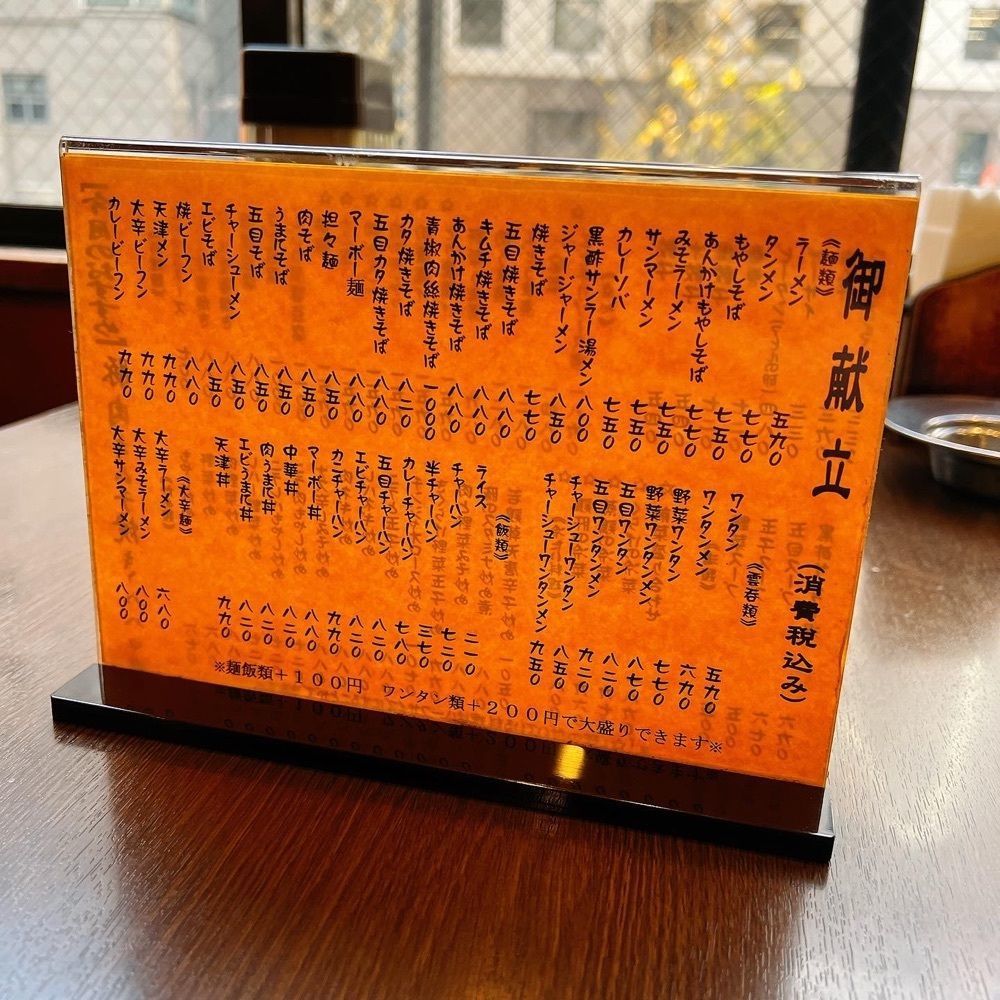 御献立(消費税込み)
《麺類》
ラーメン 五九〇
タンメン 七七〇
もやしそば 七五〇
あんかけもやしそば 七七〇
みそラーメン 七五〇
サンマーメン 七五〇
カレーソバ 七五〇
黒酢サンラー湯メン 八〇〇
ジャージャーメン 八五〇
焼きそば 七七〇
五目焼きそば 八八〇
キムチ焼きそば 八八〇
あんかけ焼きそば 八八〇
青椒肉絲焼きそば 一〇〇〇
カタ焼きそば 八二〇
五目カタ焼きそば 八八〇
マーボー麺 八八〇
担々麺 八五〇
肉そば 八五〇
うまにそば 八五〇
五目そば 八五〇
チャーシューメン 八五〇
エビそば 八五〇
焼ビーフン 八八〇
天津メン 九九〇
大辛ビーフン 九九〇
カレービーフン 九九〇
《雲呑類》
ワンタン 五九〇
ワンタンメン 六九〇
野菜ワンタン 七七〇
野菜ワンタンメン 八七〇
五目ワンタン 八二〇
五目ワンタンメン 九二〇
チャーシューワンタン 八五〇
チャーシューワンタンメン 九五〇
《飯類》
ライス 二一〇
チャーハン 七二〇
半チャーハン 三七〇
カレーチャーハン 七八〇
五目チャーハン 八二〇
エビチャーハン 八二〇
カニチャーハン 九九〇
マーボー丼 八八〇
中華丼 八二〇
肉うまに丼 八二〇
エビうまに丼 八二〇
天津丼 九九〇
《大辛麺》
大辛ラーメン 六八〇
大辛みそラーメン 八〇〇
大辛サンマーメン 八〇〇
※麺飯類+100円 ワンタン類+200円で大盛りできます※